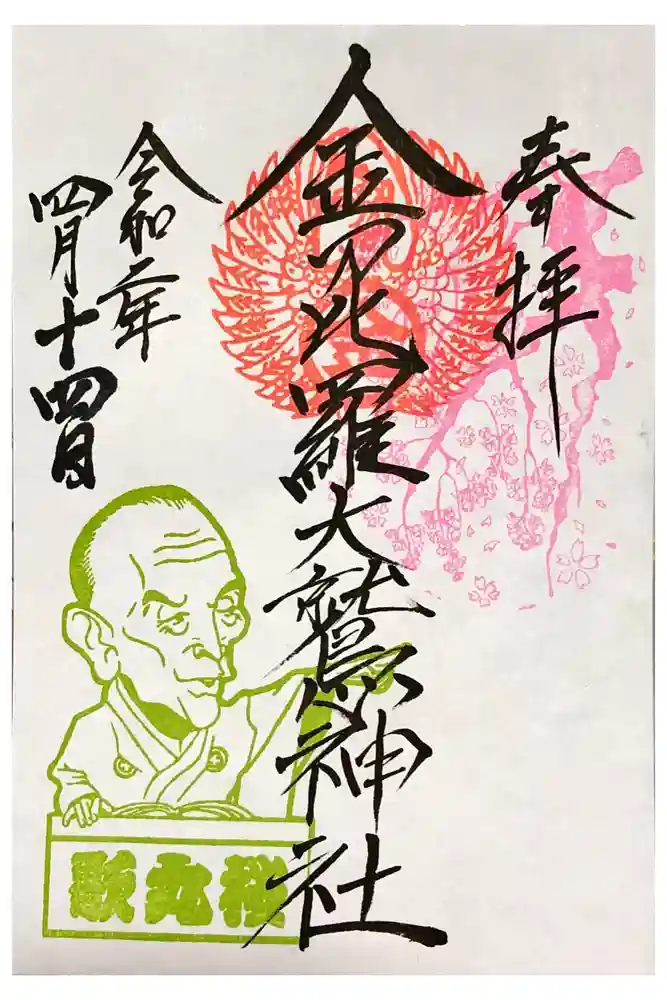 奉拝
金刀比羅大鷲神社
令和二年
四月十四日
歌丸桜